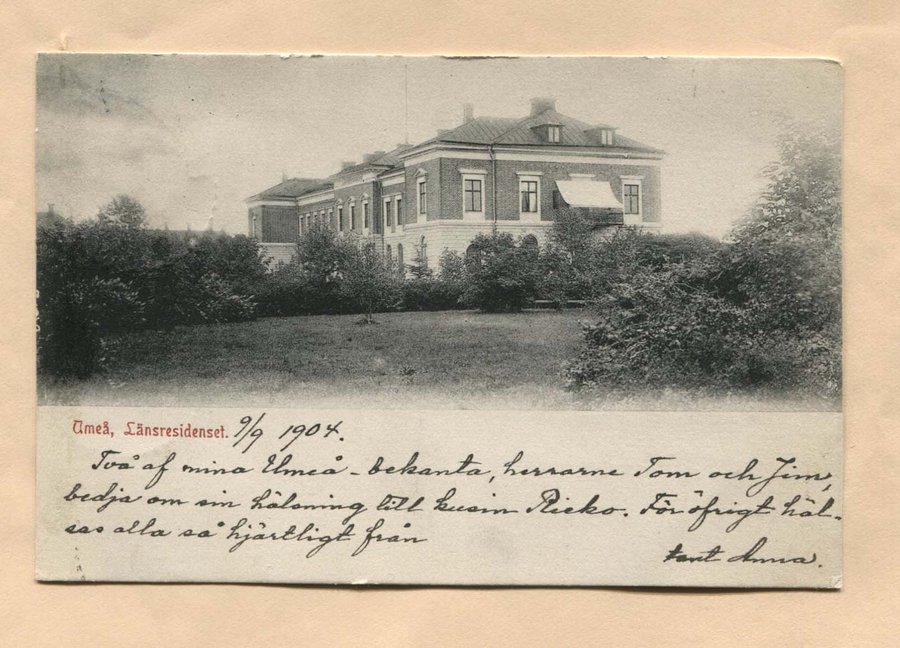 Umeå, Länsresidenset. 9/9 1904.
Två af mina Umeå-bekanta, herrarne Tom och Jim,
bedja om sin hälsning till kusin Ricko. För öfrigt häl-
sas alla så hjärtligt från
tant Anna.